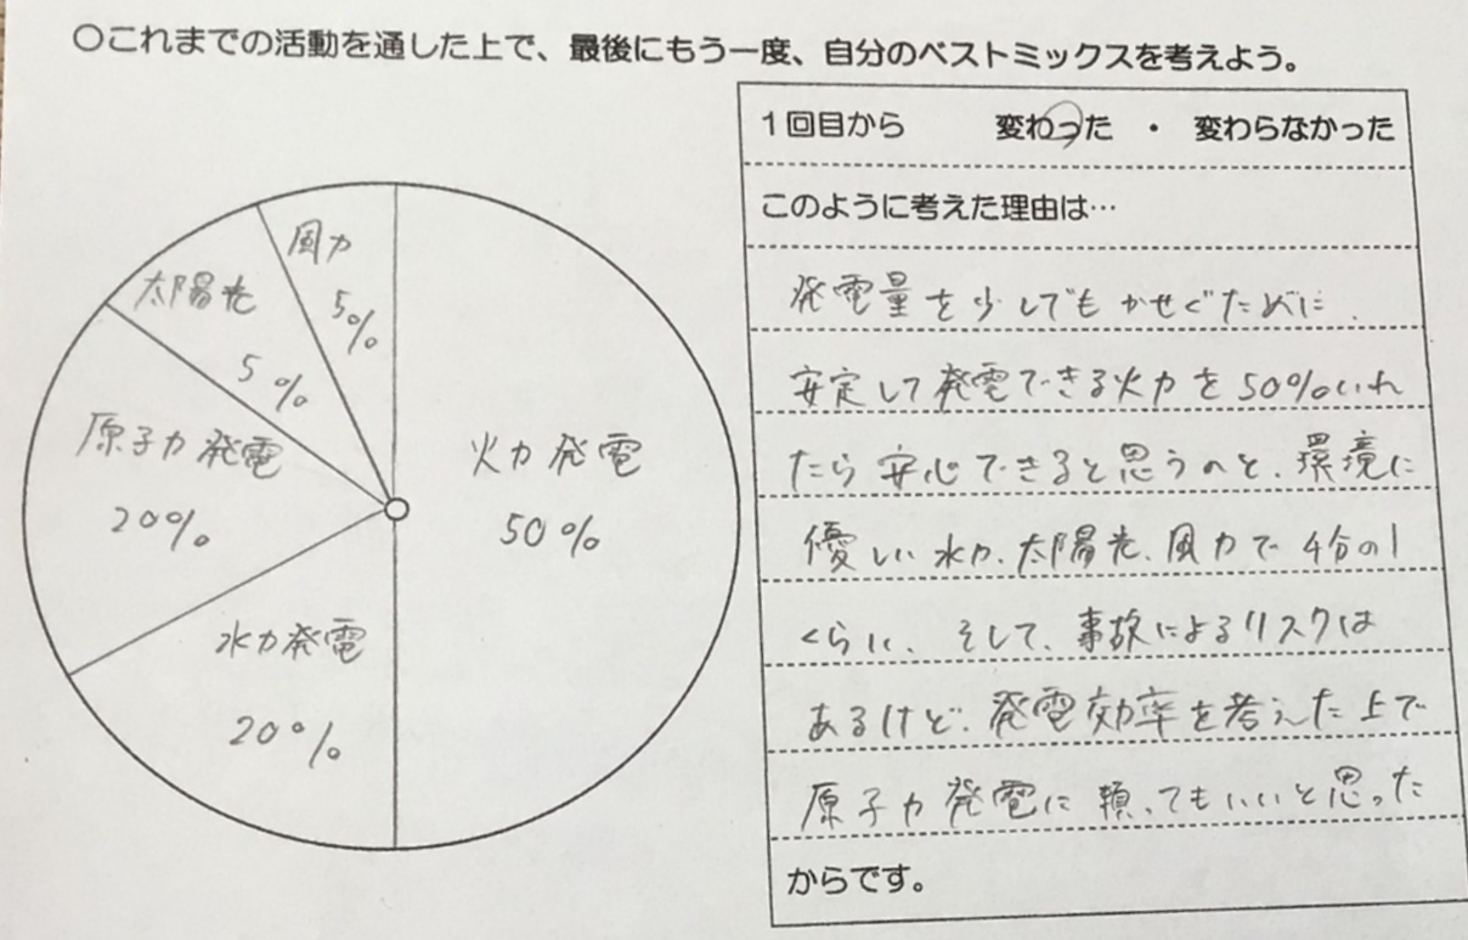 ○これまでの活動を通した上で、最後にもう一度、自分のベストミックスを考えよう。
風力
5%
太陽光
5%
原子力発電
20%
水力発電
20%
火力発電
50%
1回目から 変わった ・ 変わらなかった
このように考えた理由は…
発電量を少しでもかせぐために、
安定して発電できる火力を50%いれ
たら安心できると思うのと、環境に
優しい水力、太陽光、風力で4分の1
くらい、そして、事故によるリスクは
あるけど、発電効率を考えた上で
原子力発電に頼ってもいいと思った
からです。